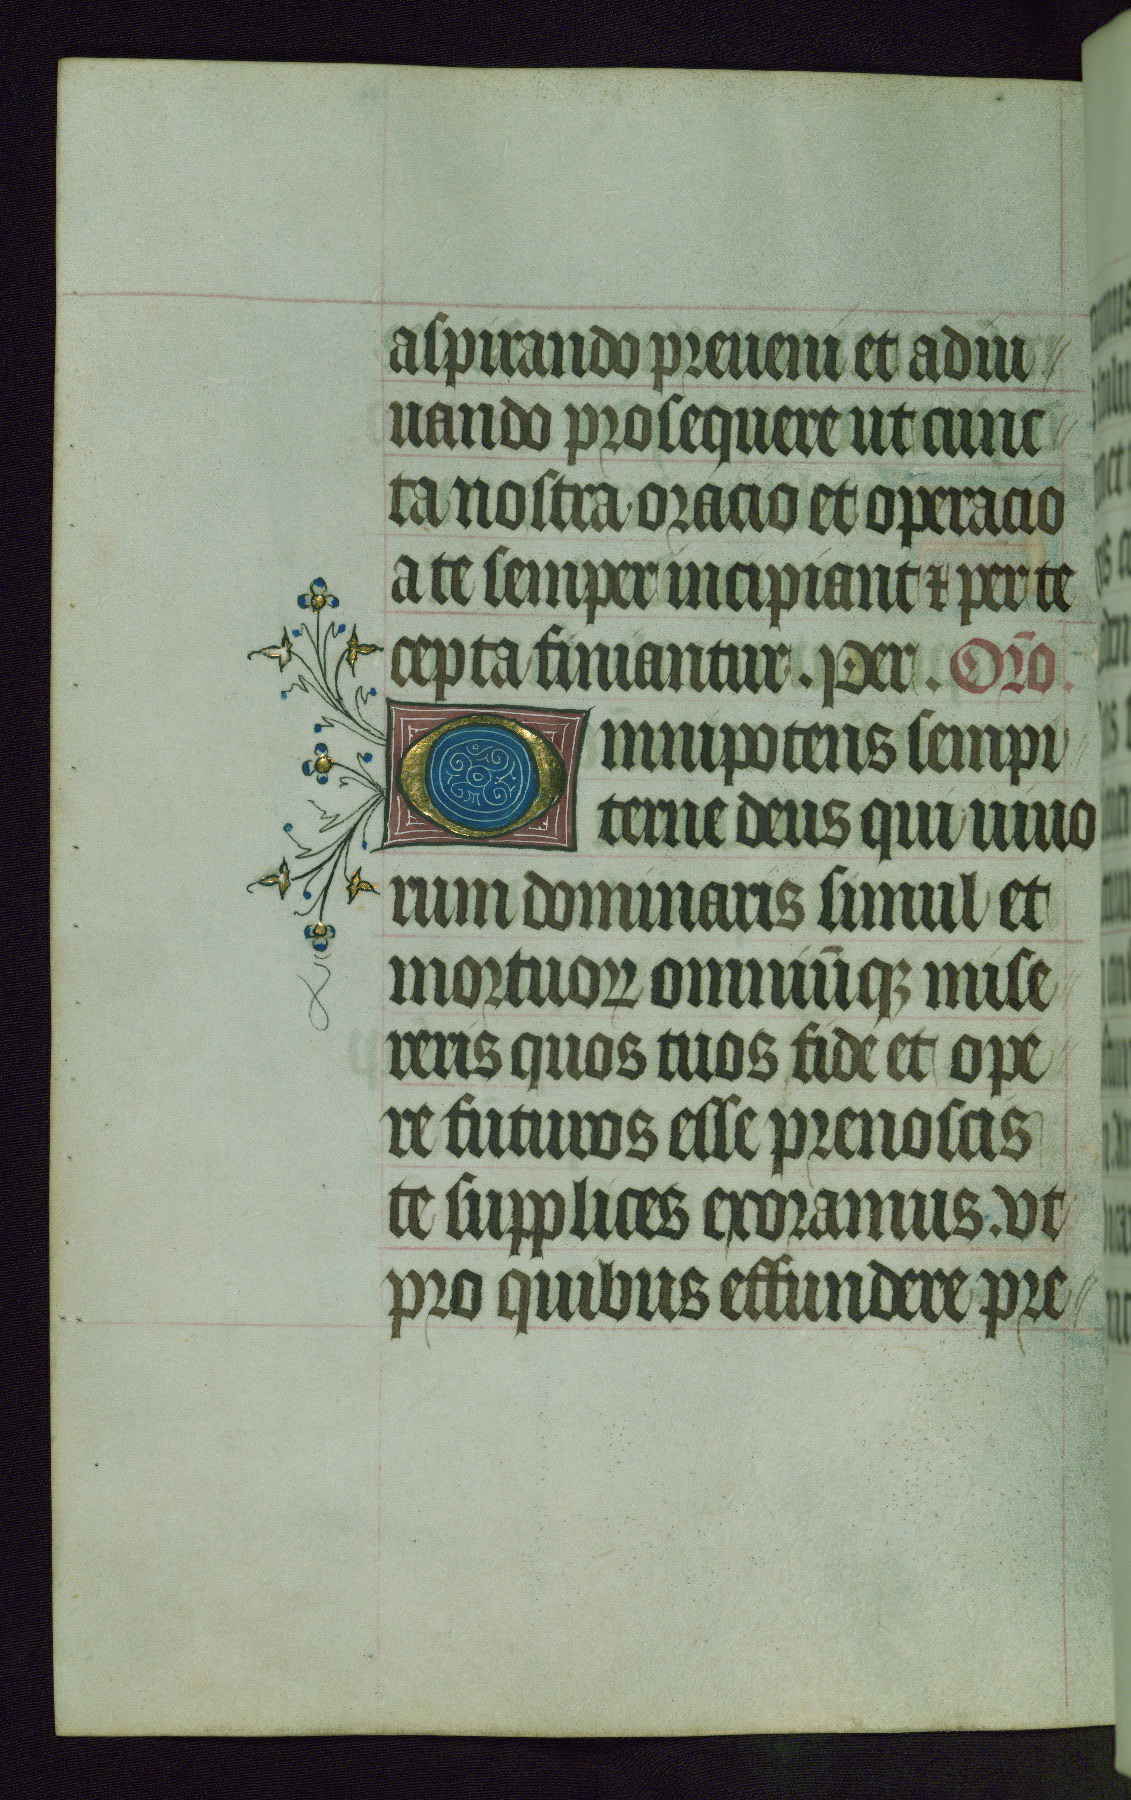 aspirando preueni et adiu
uando prosequere ut cunc
ta nostra oracio et operacio
a te semper incipiant ⁊ per te
cepta finiantur. per. Oro.
Omnipotens sempi
terne deus qui uiuo
rum dominaris simul et
mortuoꝝ omniūqꝫ mise
reris quos tuos fide et ope
re futuros esse prenoscis
te supplices exoramus. vt
pro quibus effundere pre